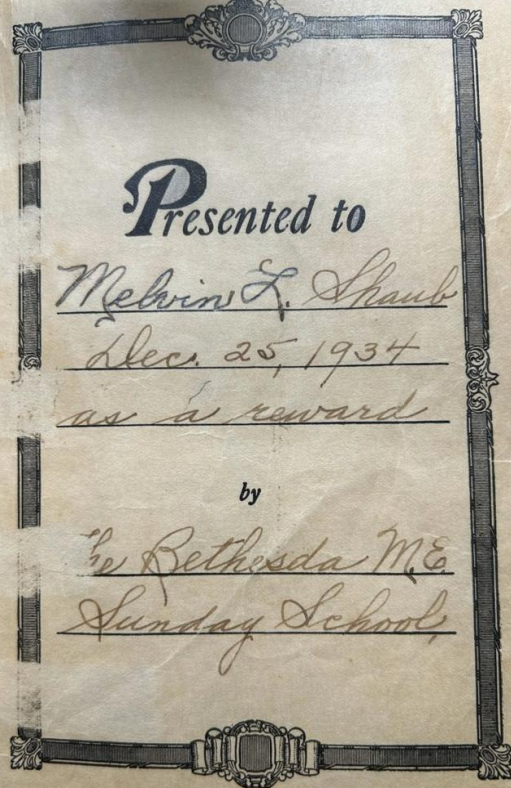 Presented to
Melvin L. Shaub
Dec. 25, 1934
as a reward
by
he Bethesda M.E.
Sunday School,